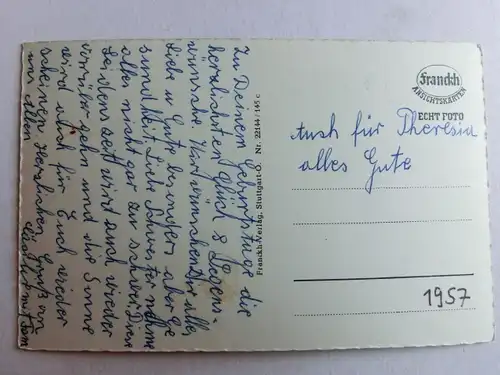 Zu Deinem Geburtstage die
herzlichsten Glück & Segens-
wünsche. Wir wünschen Dir alles
Lieb u Gute besonders aber Ge
sundheit. Liebe Schwester nehme
alles nicht gar zu schwer. Diese
Leidenszeit wird auch wieder
vorüber gehn und die Sonne
wird auch für Euch wieder
scheinen. Herzlichen Gruß von
uns allen
Franckh-Verlag, Stuttgart-O. Nr. 22144/145 c
Franckh
ANSICHTSKARTEN
ECHT FOTO
Auch für Theresia
alles Gute
1957